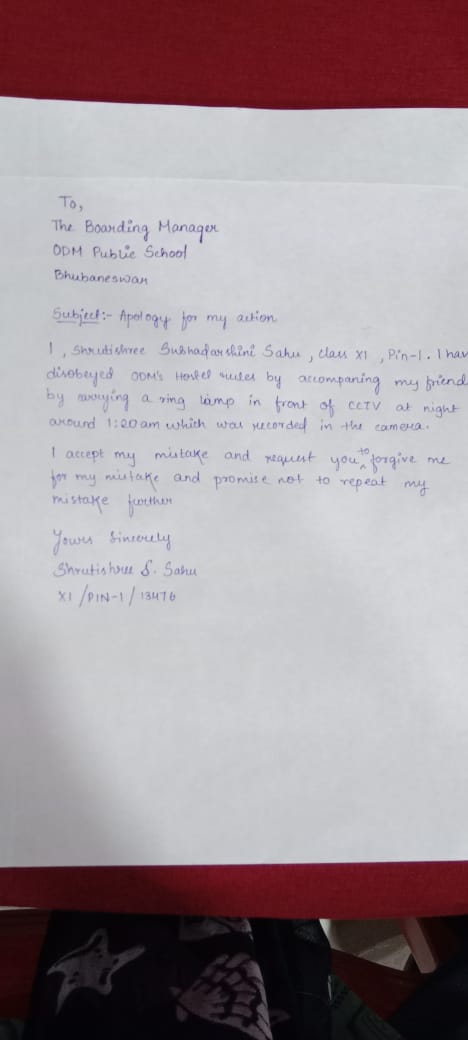 To,
The Boarding Manager
ODM Public School
Bhubaneswar
Subject:- Apology for my action
I, Shrutishree Subhadarshini Sahu, class XI, Pin-1. I hav
disobeyed ODM's Hostel rules by accompaning my friend
by carrying a ring lamp in front of CCTV at night
around 1:20 am which was recorded in the camera.
I accept my mistake and request you to forgive me
for my mistake and promise not to repeat my
mistake further
Yours Sincerely
Shrutishree S. Sahu
XI/PIN-1/13476